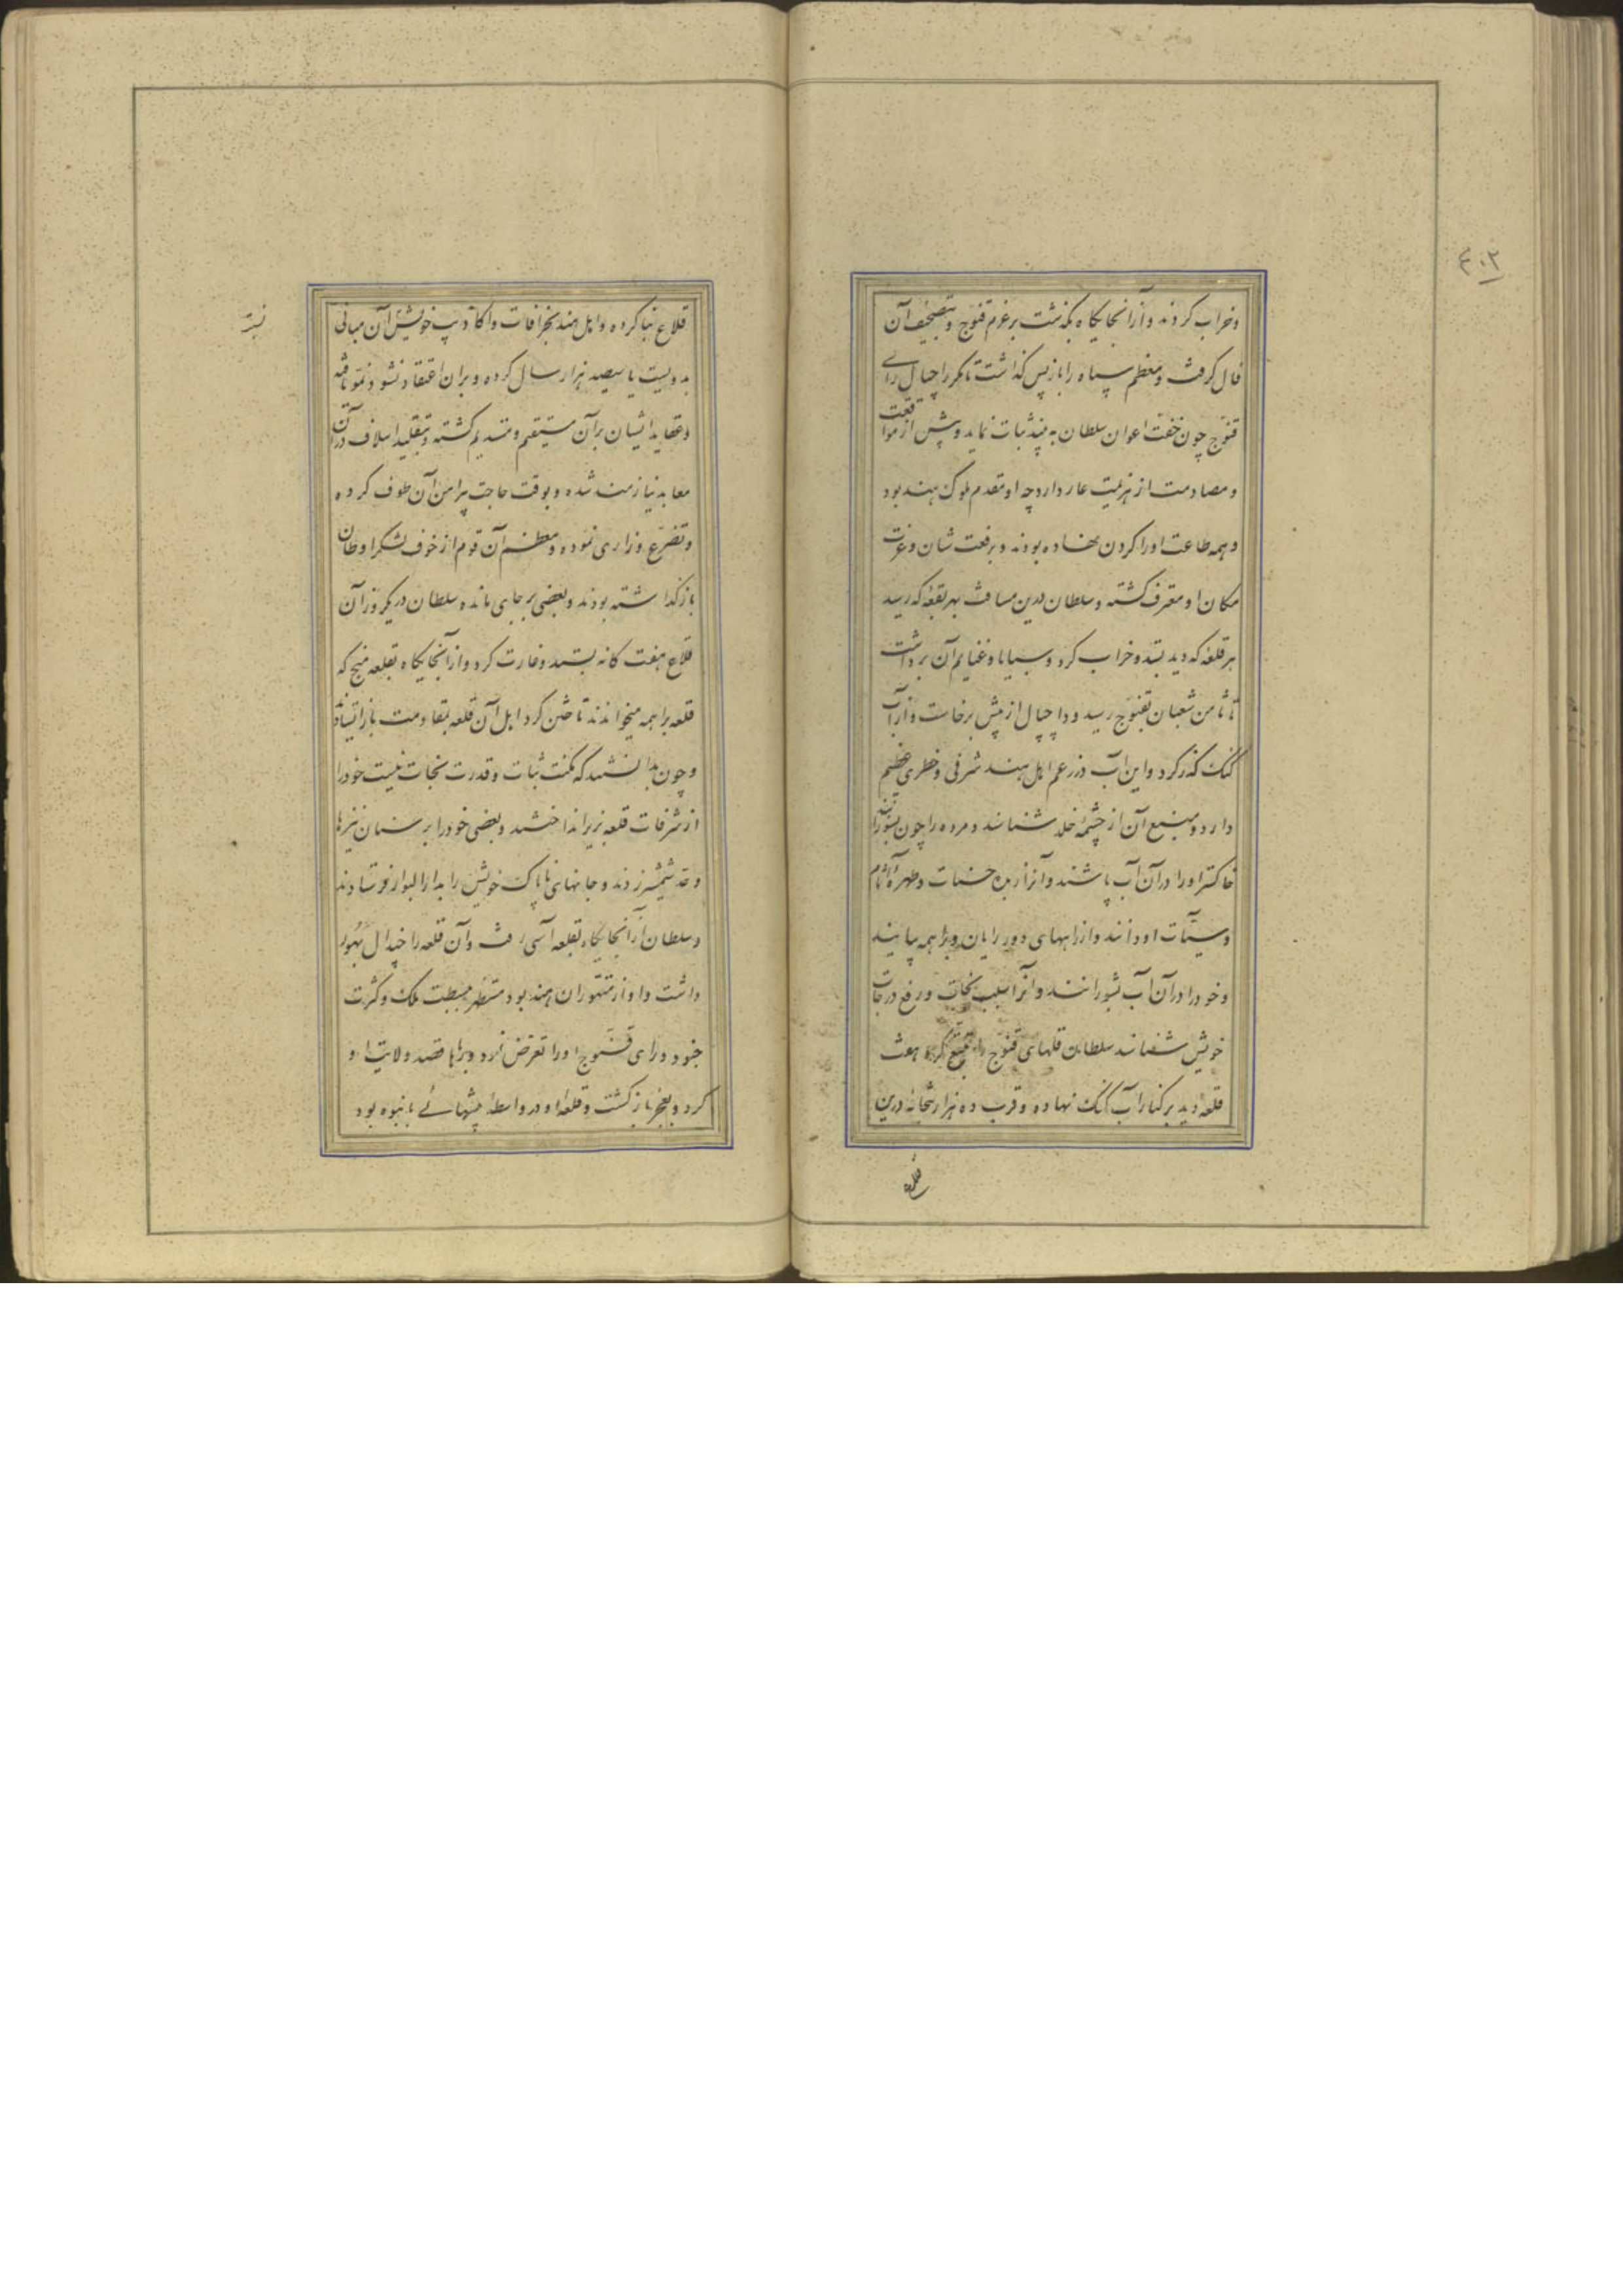 ۴۰۲
و خراب کردند و از آنجایگاه بگذشت بر عزم قنوج و بتصحیف آن
فال گرفت و معظم سپاه را باز پس گذاشت تا مگر راجیپال رای
قنوج چون خفت اعوان سلطان به بیند ثبات نماید و پیش از مواقعت
و مصادمت از هزیمت عار دارد چه او مقدم ملوک هند بود
و همه طاعت او را گردن نهاده بودند و برفعت شان و عزت
مکان او معترف گشته و سلطان درین مسافت بهر بقعه که رسید
هر قلعه که دید بستد و خراب کرد و سبایا و غنایم آن برداشت
تا ثامن شعبان بقنوج رسید و راجیپال از پیش برخاست و از آب
گنگ گذر کرد و این آب در زعم اهل هند شرفی و خطری عظیم
دارد و منبع آن از چشمه خلد شناسند و مرده را چون بسوزانند
خاکستر او را در آن آب پاشند و آنرا حسنات و مطهره آثام
و سیآت او دانند و از راههای دور رایان و براهمه بیایند
و خود را در آن آب بشورانند و آنرا سبب نجات و رفع درجات
خویش شناسند سلطان قلهای قنوج را تتبع کرد هفت
قلعه دید بر کنار آب گنگ نهاده و قرب ده هزار بتخانه درین
قلاع
قلاع بنا کرده و اهل هند بخرافات و اکاذیب خویش آن مبانی
بدویست یا سیصد هزار سال کرده و بران اعتقاد نشو و نمو یافته
و عقاید ایشان بر آن مستقیم و مستدیم گشته و بتقلید اسلاف در آن
معابد نیازمند شده و بوقت حاجت پیرامن آن طوف کرده
و تضرع و زاری نموده و معظم آن قوم از خوف لشکر اوطان
باز گذاشته بودند و بعضی بر جای مانده سلطان در یکروز آن
قلاع هفت گانه بستد و غارت کرد و از آنجایگاه بقلعه منج که
قلعه براهمه میخوانند تاختن کرد اهل آن قلعه بمقاومت باز ایستادند
و چون بدانستند که مکنت ثبات و قدرت نجات نیست خود را
از شرفات قلعه بزیر انداختند و بعضی خود را بر سنان نیزها
و حد شمشیر زدند و جانهای ناپاک خویش را بدار البوار فرستادند
و سلطان از آنجایگاه بقلعه آسی رفت و آن قلعه را جندال بهور
داشت و او از متهوران هند بود مستظهر ببسطت ملک و کثرت
جنود و رای قنوج او را تعرض کرد و بارها قصد ولایت او
کرد و بعجز باز گشت و قلعه او در واسطه بیشهائی بانبوه بود